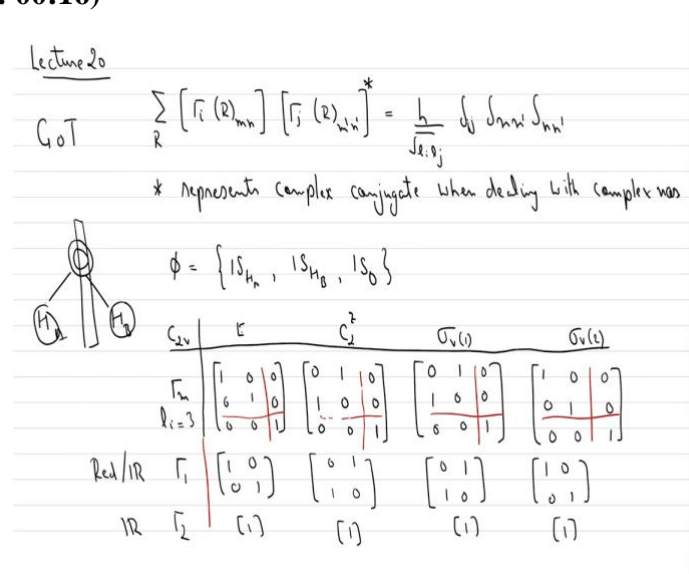 : 00:16)
Lecture 20
GOT ∑_R [Γi (R)mn] [Γj (R)m'n']* = h/√(li lj) δij δmm' δnn'
* represents complex conjugate when dealing with complex nos
H_A O H_B φ = {1S_HA, 1S_HB, 1S_O}
C2v E C2^z σv(1) σv(2)
Γm li=3 [1 0 0; 0 1 0; 0 0 1] [0 1 0; 1 0 0; 0 0 1] [0 1 0; 1 0 0; 0 0 1] [1 0 0; 0 1 0; 0 0 1]
Red/IR Γ1 [1 0; 0 1] [0 1; 1 0] [0 1; 1 0] [1 0; 0 1]
IR Γ2 [1] [1] [1] [1]